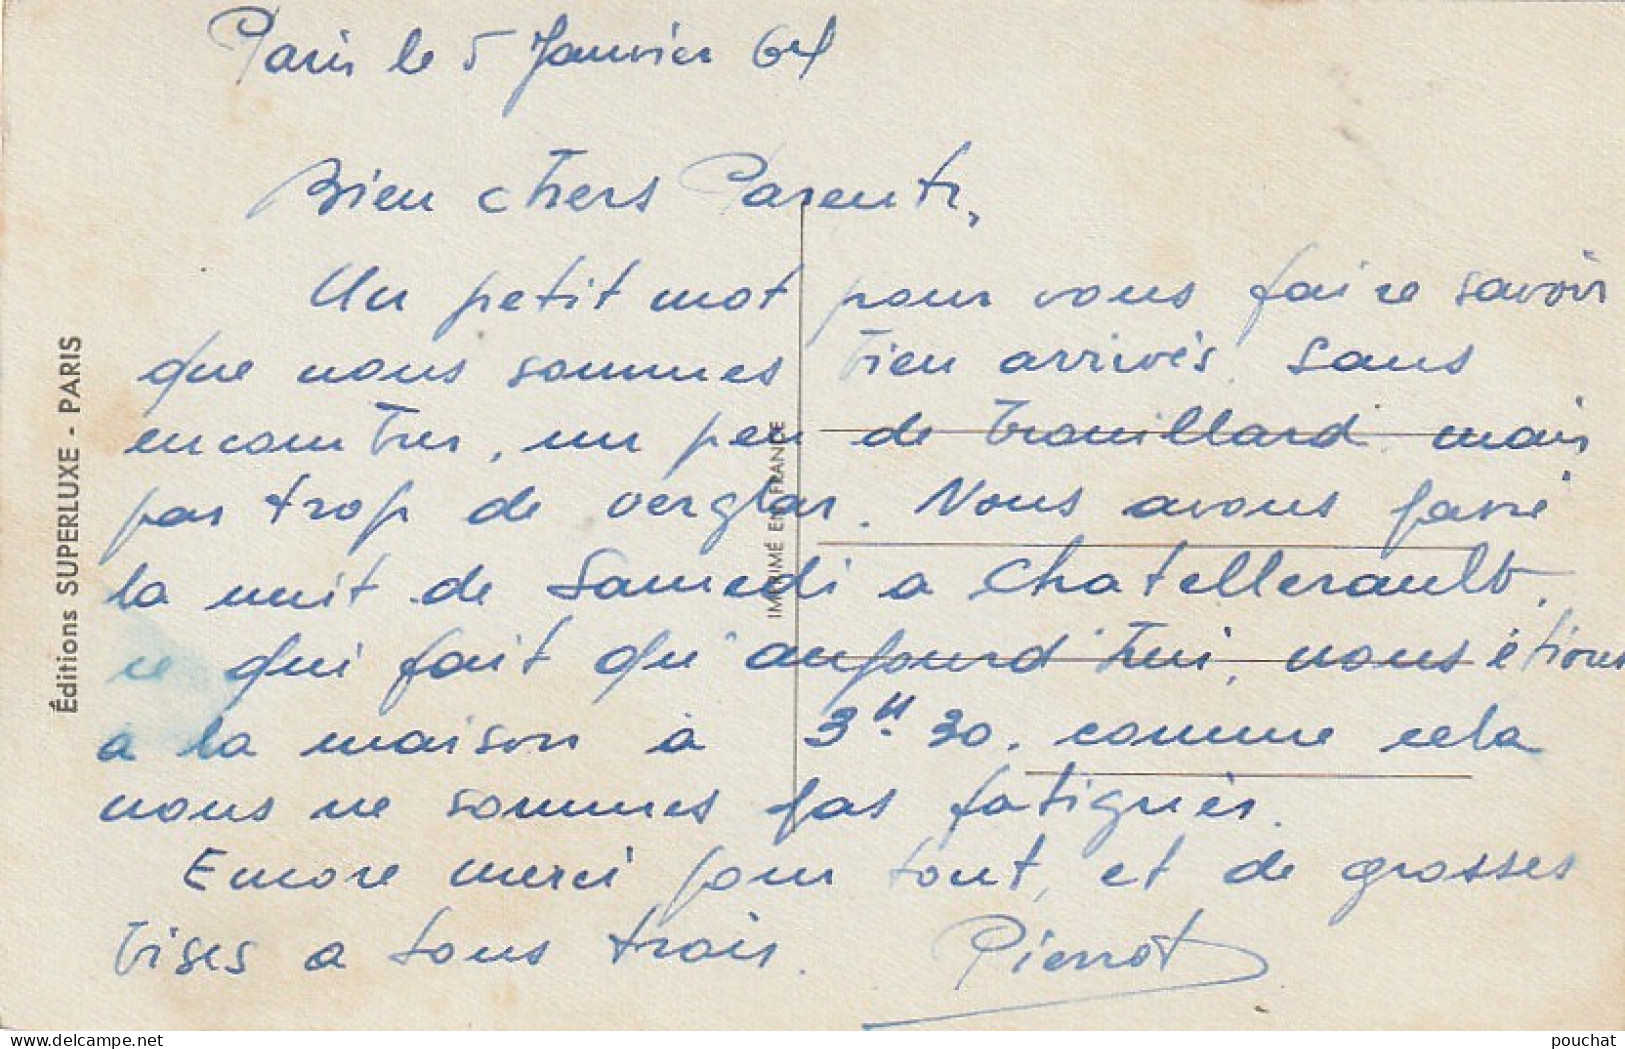 Paris le 5 Janvier 64
Bien chers Parents,
Un petit mot pour vous faire savoir
que nous sommes bien arrivés. Sans
encombres, un peu de brouillard mais
pas trop de verglas. Nous avons passé
la nuit de Samedi a Chatellerault,
ce qui fait qu'aujourd'hui, nous étions
a la maison à 3H 30. comme cela
nous ne sommes pas fatigués.
Encore merci pour tout, et de grosses
bises a tous trois. Pierrot
Éditions SUPERLUXE - PARIS
IMPRIMÉ EN FRANCE
www.delcampe.net
pouchat